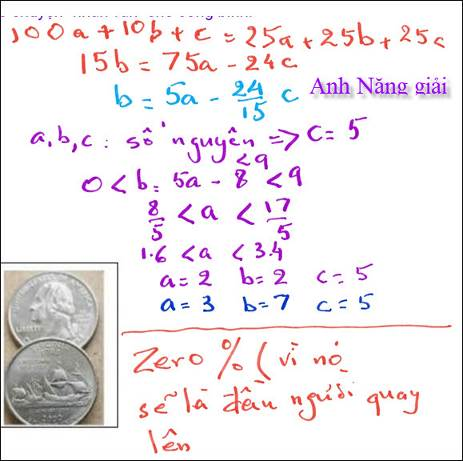 100a + 10b + c = 25a + 25b + 25c
15b = 75a - 24c
b = 5a - 24/15 c
Anh Năng giải
a, b, c : số nguyên => c = 5
< 9
0 < b = 5a - 8 < 9
8/5 < a < 17/5
1.6 < a < 3.4
a = 2 b = 2 c = 5
a = 3 b = 7 c = 5
Zero % ( vì nó
sẽ là đầu người quay
lên